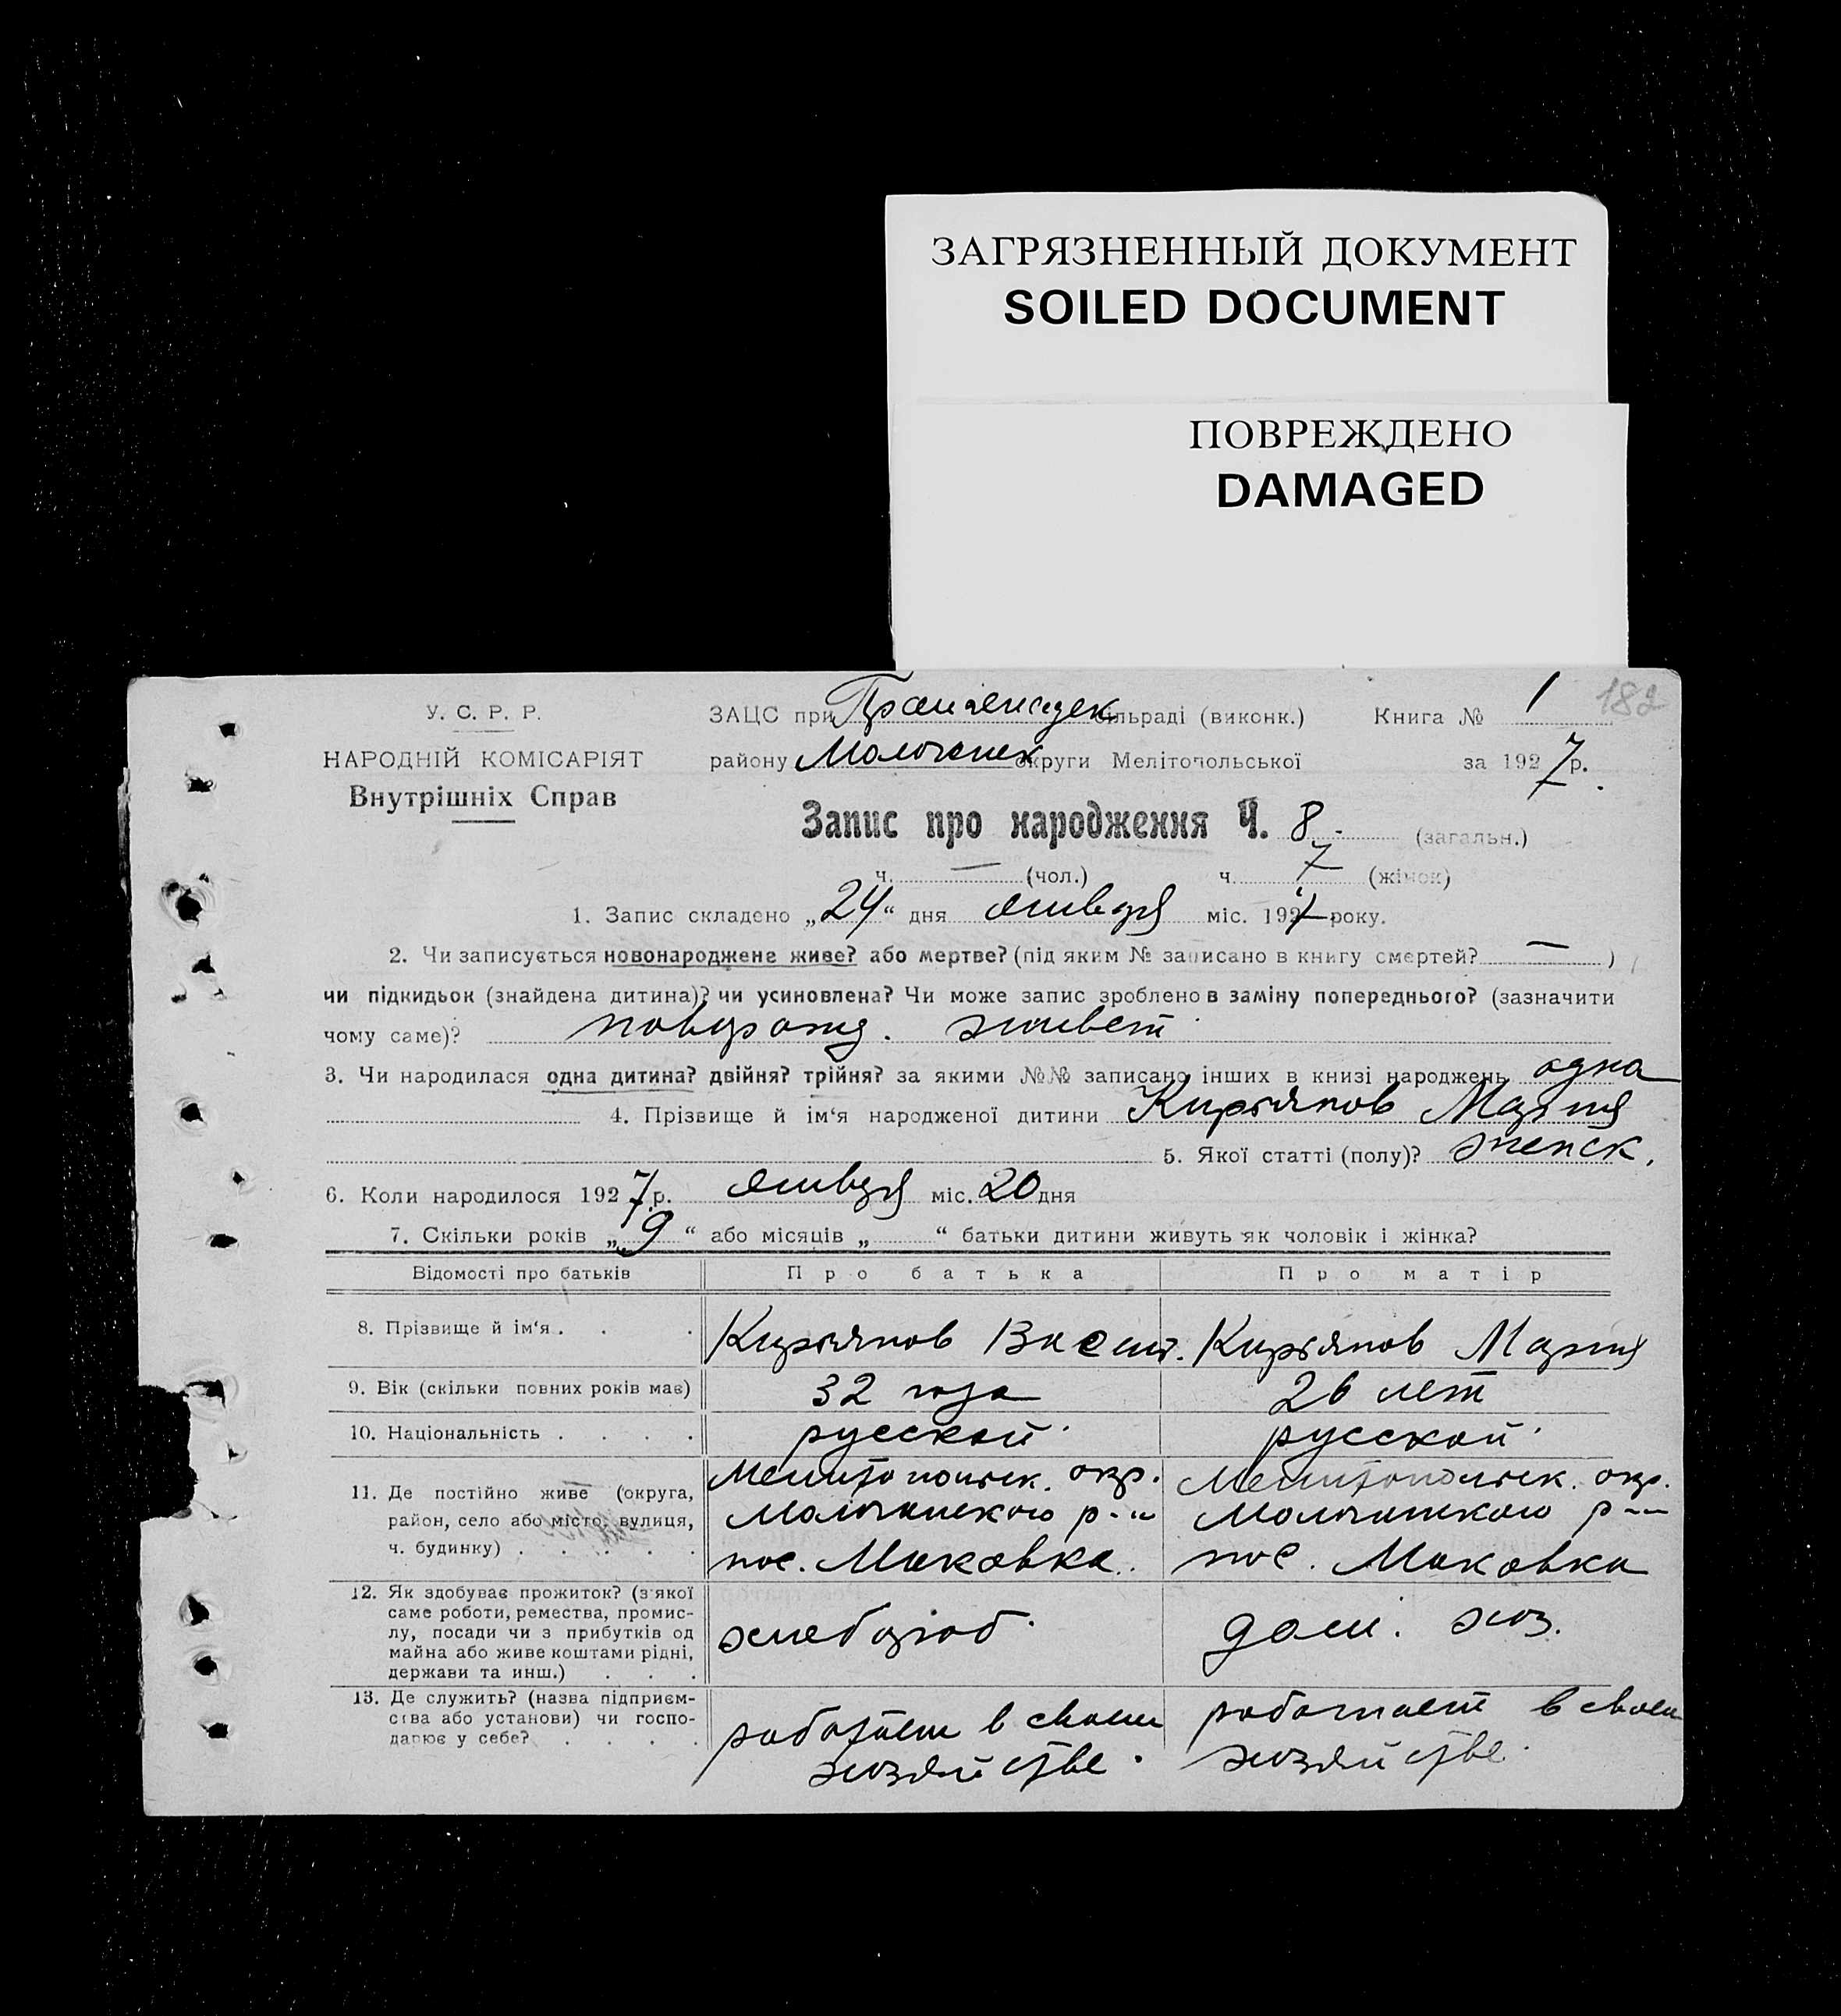 ЗАГРЯЗНЕННЫЙ ДОКУМЕНТ
SOILED DOCUMENT
ПОВРЕЖДЕНО
DAMAGED
182
У. С. Р. Р.
НАРОДНІЙ КОМІСАРІЯТ
Внутрішніх Справ
ЗАЦС при сільраді (виконк.) Книга № 1
району Молочанск округи Мелітопольської за 1927 р.
Запис про народження Ч. 8 (загальн.)
ч. — (чол.) ч. 7 (жінок)
1. Запис складено „24“ дня января міс. 1927 року.
2. Чи записується новонароджене живе? або мертве? (під яким № записано в книгу смертей? — )
чи підкидьок (знайдена дитина)? чи усиновлена? Чи може запис зроблено в заміну попереднього? (зазначити
чому саме)? новорожд. живет
3. Чи народилася одна дитина? двійня? трійня? за якими №№ записано інших в книзі народжень одна
4. Прізвище й ім‘я народженої дитини Кирьянов Мария
5. Якої статті (полу)? женск.
6. Коли народилося 1927 р. января міс. 20 дня
7. Скільки років „9“ або місяців „ “ батьки дитини живуть як чоловік і жінка?
Відомості про батьків Про батька Про матір
8. Прізвище й ім‘я . . . Кирьянов Васил. Кирьянов Мария
9. Вік (скільки повних років має) 32 года 26 лет
10. Національність . . . . русской русской
11. Де постійно живе (округа, район, село або місто, вулиця, ч. будинку) . . . . .
Мелитопольск. окр. Мелитопольск. окр.
Молочанского р-н Молочанского р-н
пос. Маковка. пос. Маковка
12. Як здобуває прожиток? (з якої
саме роботи, ремества, промис-
лу, посади чи з прибутків од
майна або живе коштами рідні,
держави та инш.) . . .
хлебороб. дом. хоз.
13. Де служить? (назва підприєм-
ства або установи) чи госпо-
дарює у себе? . . . .
работает в своем работает в своем
хозяйстве. хозяйстве.